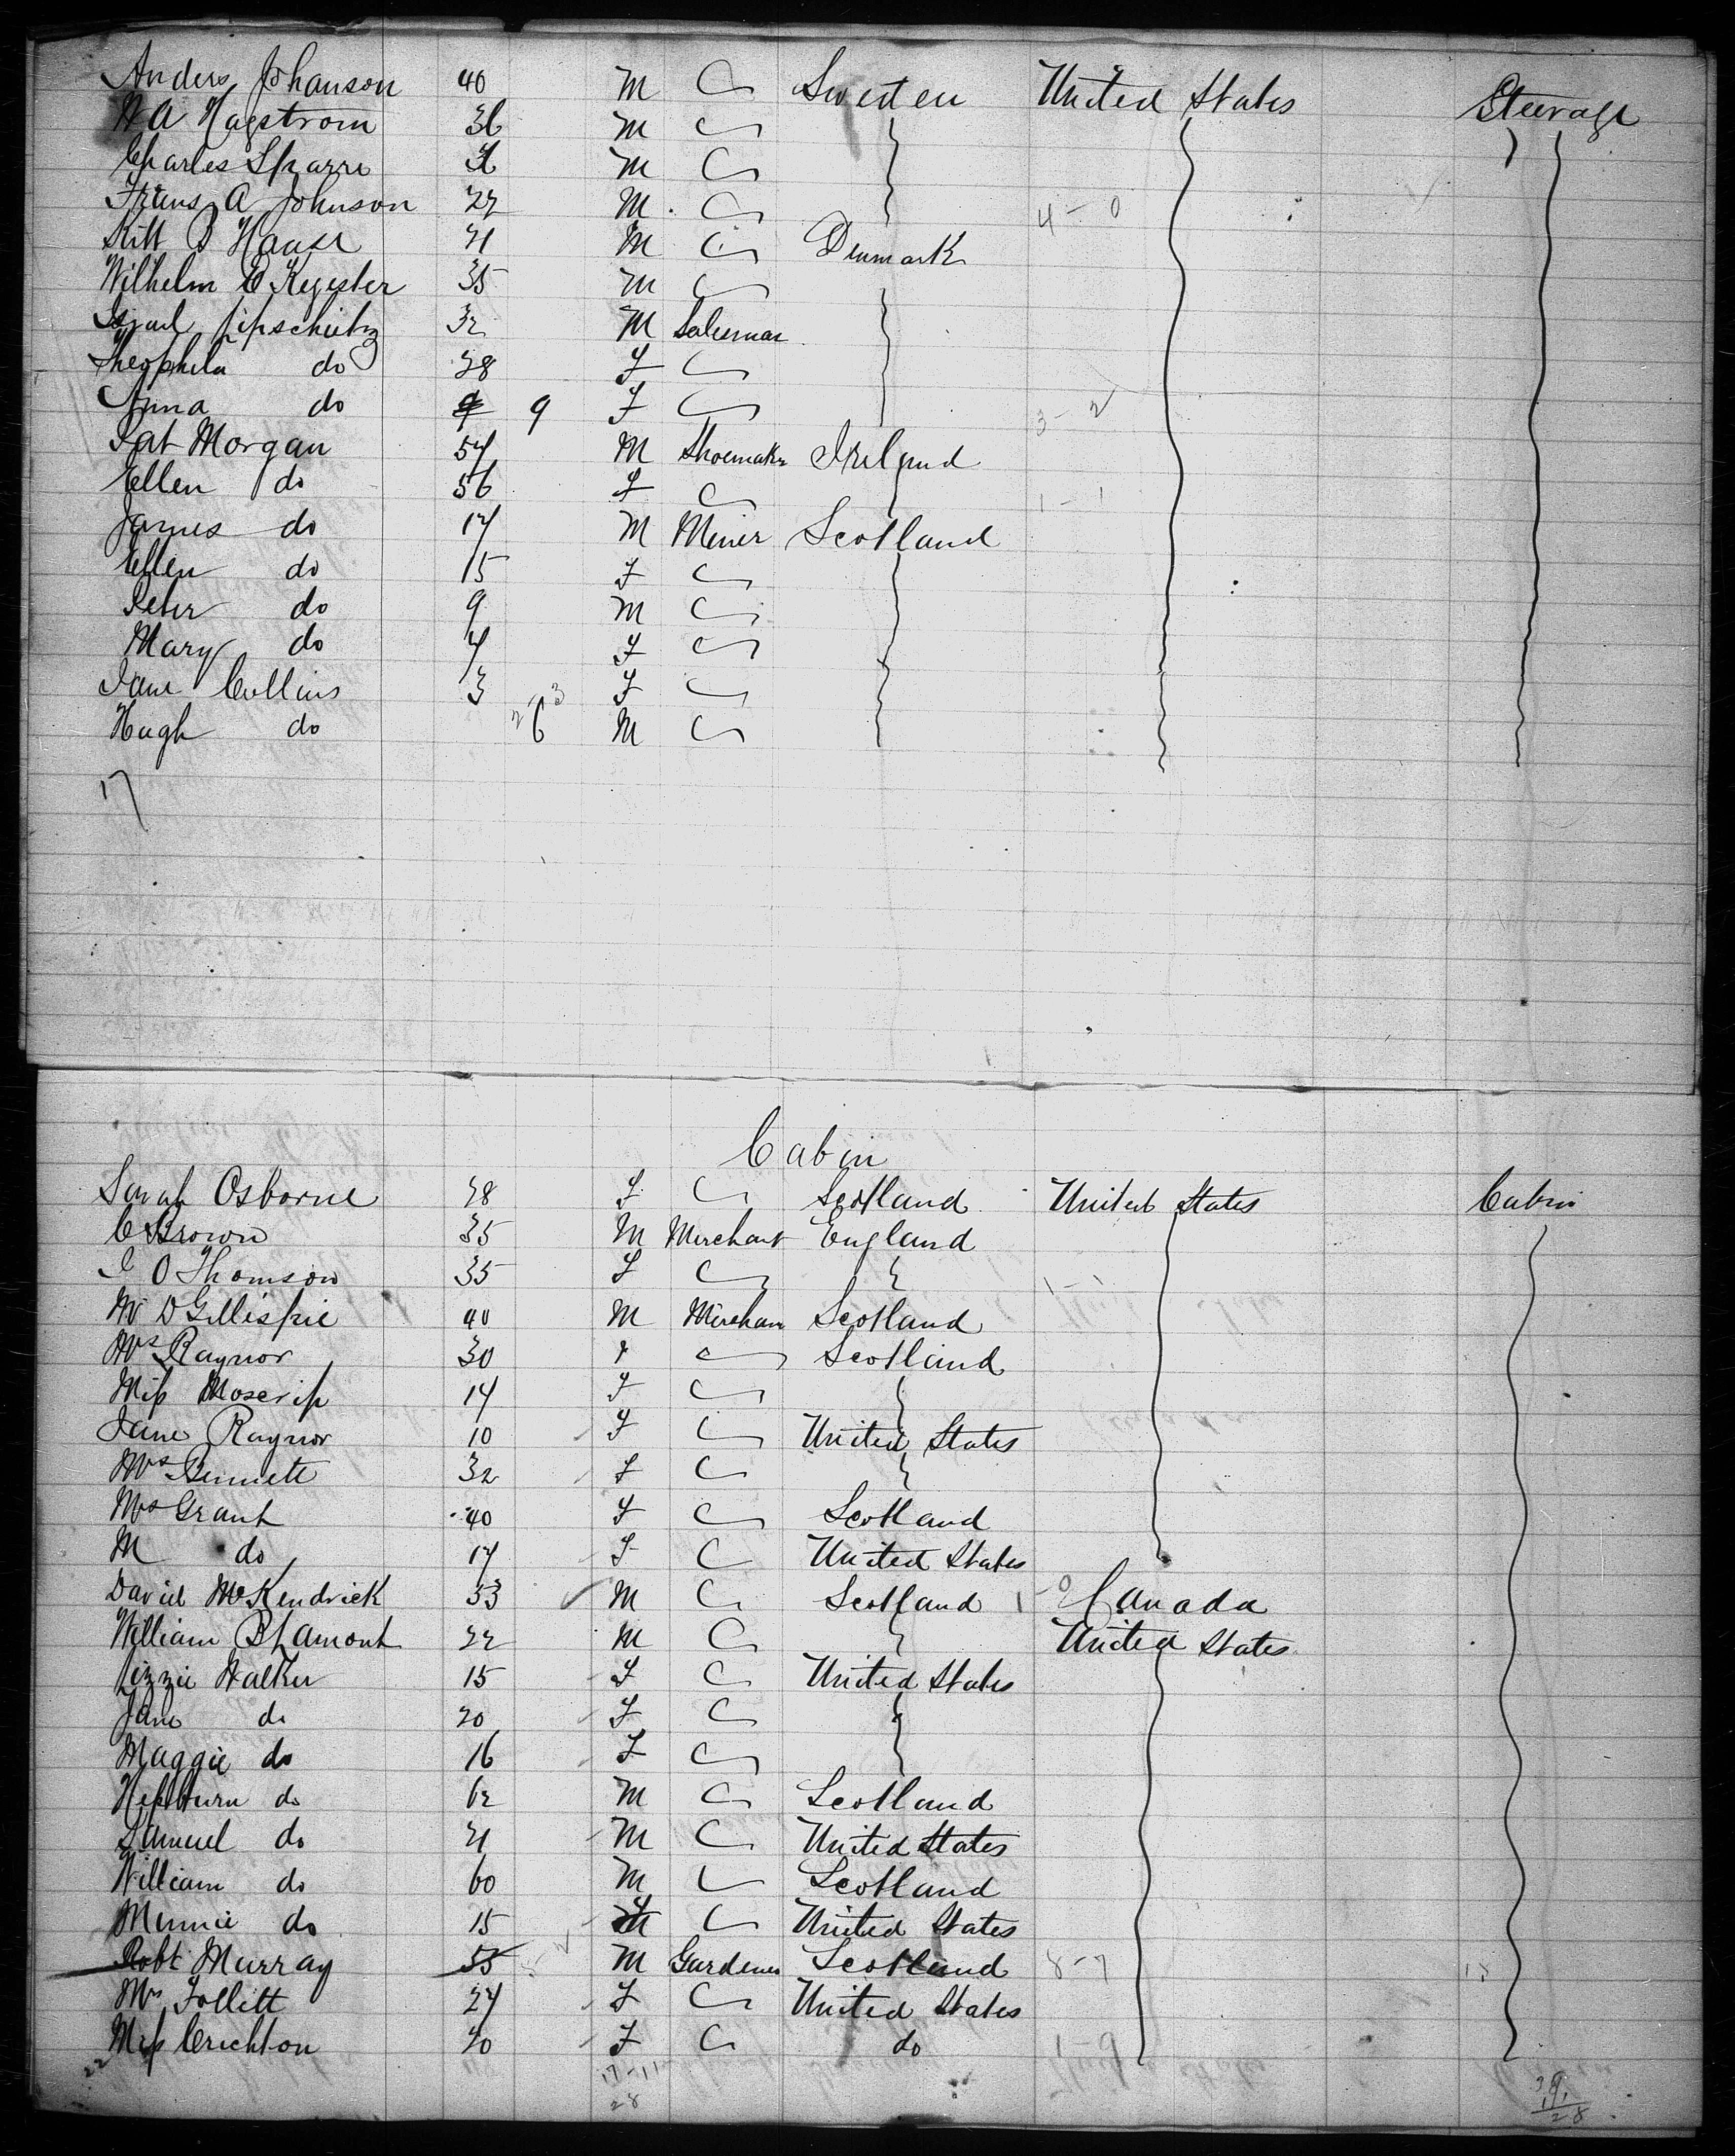 Anders Johanson 40 M Sweden United States Steerage
H A Hagstrom 36 M
Charles Sparre M
Frans A Johnson 22 M 4 - 0
Kitt B 21 M Denmark
Wilhelm C Kegester 35 M
Lipschutz 32 M Salesman
Theophela do 28 F
Anna do 9 F 3 - 2
Pat Morgan 54 M Shoemaker Ireland
Ellen do 56 F 1 - 1
James do 17 M Miner Scotland
Ellen do 15 F
Peter do 9 M
Mary do 4 F
Jane Collins 3 F
Hugh do 6 M
17
Cabin
Sarah Osborne 28 F Scotland United States Cabin
C Brown 35 M Merchant England
J O Thomson 35 F 1 - 1
Mr D Gillespie 40 M Merchan Scotland
Mrs Raynor 30 F Scotland
Miss Moscrip 14 F
Jane Raynor 10 F United States
Mrs Bennett 32 F
Mrs Grant 40 F Scotland
M do 17 F United States
David McKendrick 33 M Scotland 1 - 0 Canada
William B Lamont 22 M United States
Lizzie Walker 15 F United States
Jane do 20 F
Maggie do 16 F
Hepburn do 62 M Scotland
Samuel do 21 M United States
William do 60 M Scotland
Minnie do 15 F United States
Robt Murray 55 M Gardener Scotland 8 - 7
Mrs Follett 24 F United States
Miss Crichton 20 F do 1 - 9
22 17 - 11
28 28